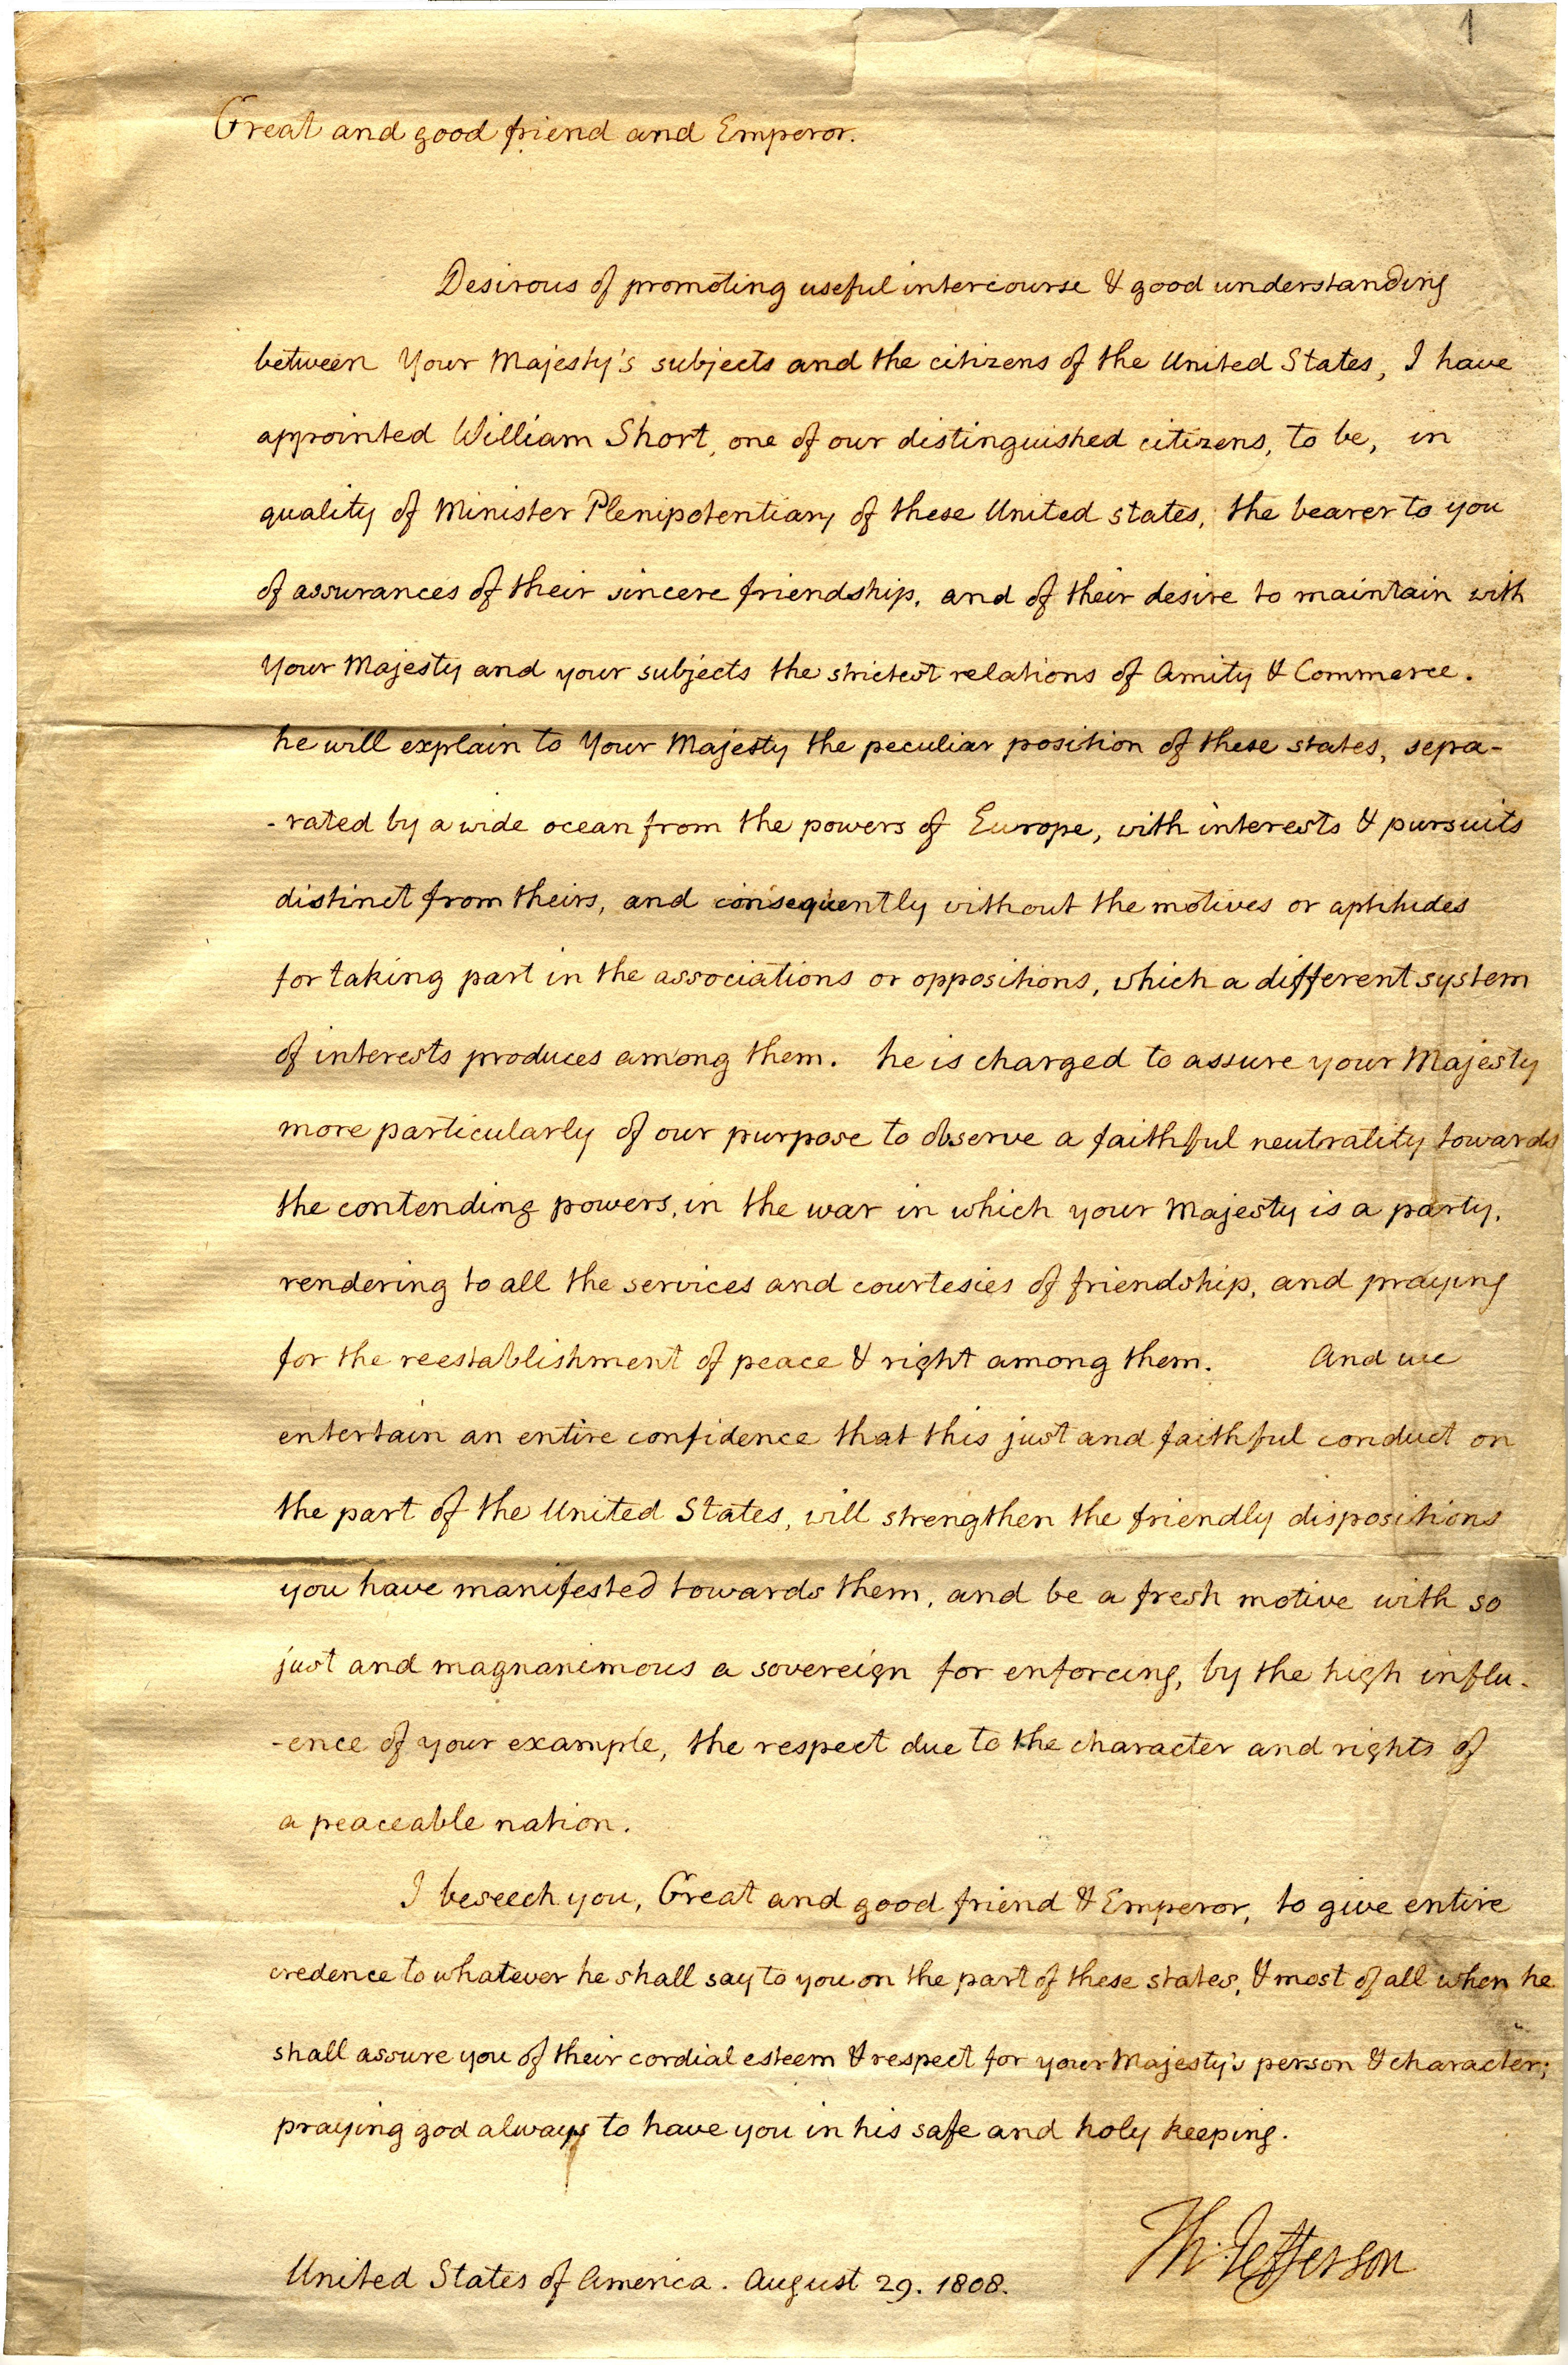 1
Great and good friend and Emperor.
Desirous of promoting useful intercourse & good understanding
between Your Majesty's subjects and the citizens of the United States, I have
appointed William Short, one of our distinguished citizens, to be, in
quality of Minister Plenipotentiary of these United states, the bearer to you
of assurances of their sincere friendship, and of their desire to maintain with
Your Majesty and your subjects the strictest relations of Amity & Commerce.
he will explain to Your Majesty the peculiar position of these states, sepa-
-rated by a wide ocean from the powers of Europe, with interests & pursuits
distinct from theirs, and consequently without the motives or aptitudes
for taking part in the associations or oppositions, which a different system
of interests produces among them. he is charged to assure your Majesty
more particularly of our purpose to observe a faithful neutrality towards
the contending powers, in the war in which your Majesty is a party,
rendering to all the services and courtesies of friendship, and praying
for the reestablishment of peace & right among them. And we
entertain an entire confidence that this just and faithful conduct on
the part of the United States, will strengthen the friendly dispositions
you have manifested towards them, and be a fresh motive with so
just and magnanimous a sovereign for enforcing, by the high influ-
-ence of your example, the respect due to the character and rights of
a peaceable nation.
I beseech you, Great and good friend & Emperor, to give entire
credence to whatever he shall say to you on the part of these states, & most of all when he
shall assure you of their cordial esteem & respect for your Majesty's person & character;
praying god always to have you in his safe and holy keeping.
Th: Jefferson
United States of America. August 29. 1808.